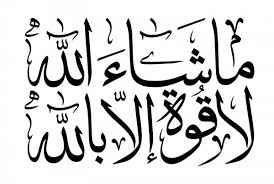 ما شَاءَ اللّٰهُ
لا قُوَّةَ إِلَّا بِاللّٰهِ